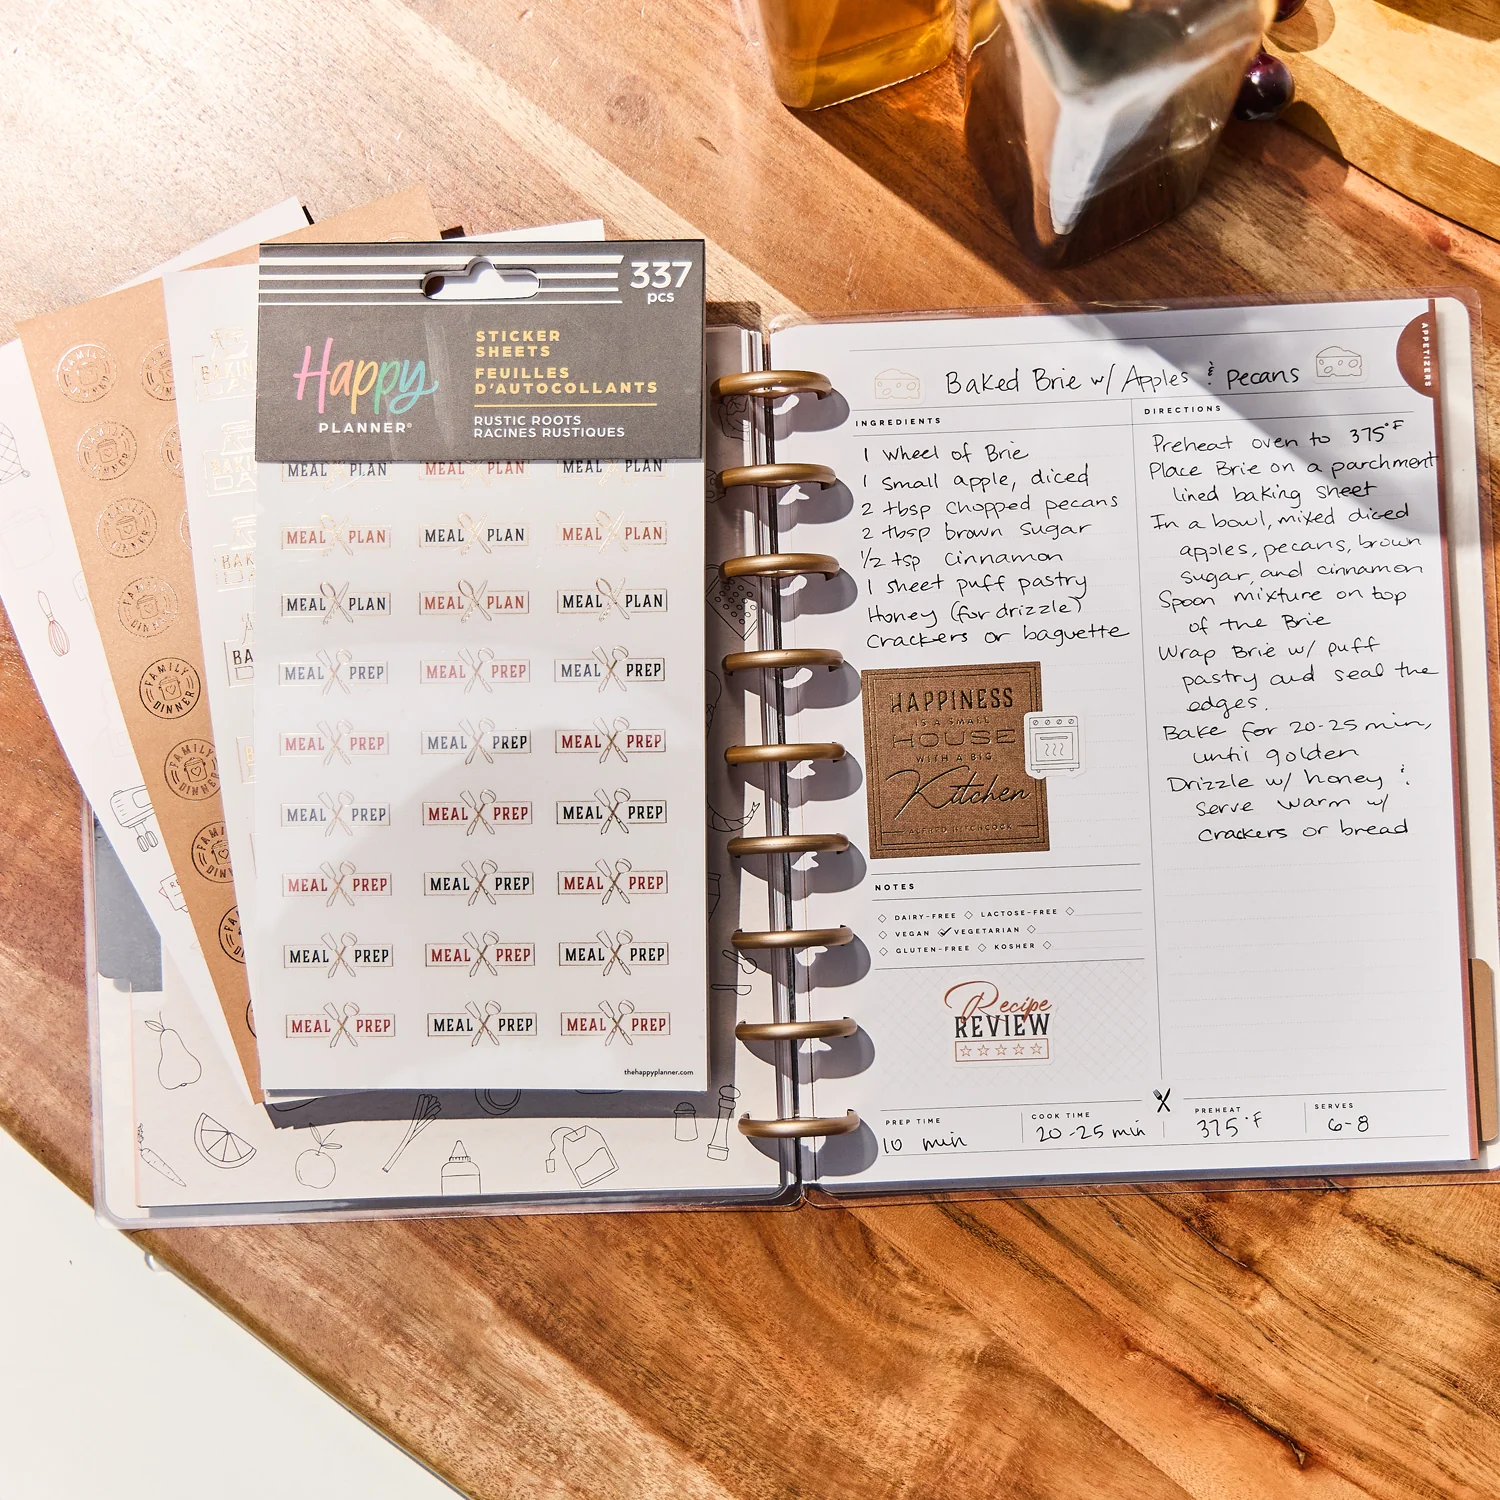 337
pcs
Happy
PLANNER®
STICKER
SHEETS
FEUILLES
D'AUTOCOLLANTS
RUSTIC ROOTS
RACINES RUSTIQUES
MEAL PLAN MEAL PLAN MEAL PLAN
MEAL PLAN MEAL PLAN MEAL PLAN
MEAL PLAN MEAL PLAN MEAL PLAN
MEAL PREP MEAL PREP MEAL PREP
MEAL PREP MEAL PREP MEAL PREP
MEAL PREP MEAL PREP MEAL PREP
MEAL PREP MEAL PREP MEAL PREP
MEAL PREP MEAL PREP MEAL PREP
MEAL PREP MEAL PREP MEAL PREP
thehappyplanner.com
FAMILY DINNER
FAMILY DINNER
FAMILY DINNER
FAMILY DINNER
FAMILY DINNER
FAMILY DINNER
APPETIZERS
Baked Brie w/ Apples & pecans
INGREDIENTS
1 wheel of Brie
1 small apple, diced
2 tbsp chopped pecans
2 tbsp brown sugar
1/2 tsp Cinnamon
1 sheet puff pastry
Honey (for drizzle)
Crackers or baguette
HAPPINESS
IS A SMALL
HOUSE
WITH A BIG
Kitchen
ALFRED HITCHCOCK
NOTES
DAIRY-FREE LACTOSE-FREE
VEGAN VEGETARIAN
GLUTEN-FREE KOSHER
Recipe
REVIEW
DIRECTIONS
Preheat oven to 375°F
Place Brie on a parchment
lined baking sheet
In a bowl, mixed diced
apples, pecans, brown
sugar, and cinnamon
Spoon mixture on top
of the Brie
Wrap Brie w/ puff
pastry and seal the
edges.
Bake for 20-25 min,
until golden
Drizzle w/ honey &
serve warm w/
crackers or bread
PREP TIME
10 min
COOK TIME
20-25 min
PREHEAT
375°F
SERVES
6-8